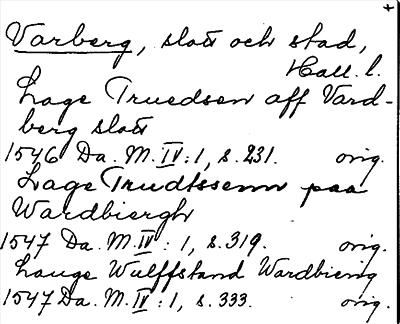 Varberg, slott och stad,
Hall. l.
Lage Truedsen aff Vard-
berg slott
1546 Da. M. IV: 1, s. 231. orig.
Lage Trudtssenn paa
Wardbiergh
1547 Da. M. IV: 1, s. 319. orig.
Lauge Wulffstand Wardbierig
1547 Da. M. IV: 1, s. 333. orig.